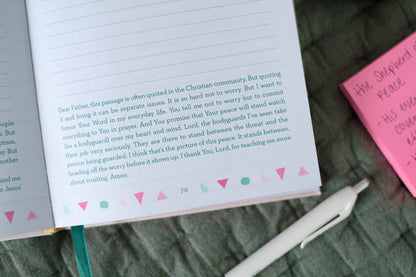 people
But
another
and me
n Jesus'
Dear Father, this passage is often quoted in the Christian community. But quoting
it and living it can be separate issues. It is so hard not to worry. But I want to
honor Your Word in my everyday life. You tell me not to worry but to commit
everything to You in prayer. And You promise that Your peace will stand watch
(be a bodyguard) over my heart and mind. Lord, the bodyguards I've seen take
their job very seriously. They are there to stand between the threat and the
person being guarded. I think that's the picture of this peace. It stands between,
heading off the worry before it shows up. I thank You, Lord, for teaching me more
about trusting. Amen.
79
The Shepherd
peace